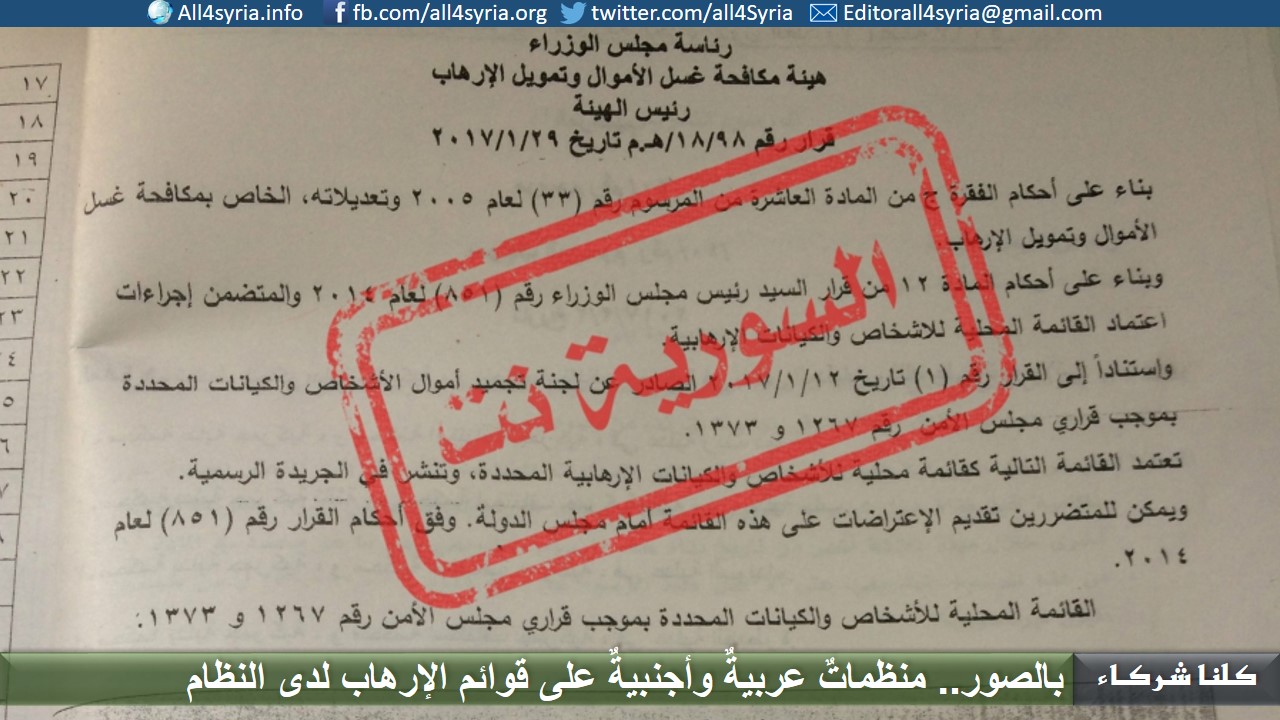 All4Syria.info fb.com/all4syria.org twitter.com/all4Syria Editorall4syria@gmail.com
رئاسة مجلس الوزراء
هيئة مكافحة غسل الأموال وتمويل الإرهاب
رئيس الهيئة
قرار رقم ١٨/٩٨/هـ.م تاريخ ٢٠١٧/١/٢٩
بناء على أحكام الفقرة ج من المادة العاشرة من المرسوم رقم (٣٣) لعام ٢٠٠٥ وتعديلاته، الخاص بمكافحة غسل
الأموال وتمويل الإرهاب.
وبناء على أحكام المادة ١٢ من قرار السيد رئيس مجلس الوزراء رقم (٨٥١) لعام ٢٠١٤ والمتضمن إجراءات
اعتماد القائمة المحلية للاشخاص والكيانات الإرهابية.
واستناداً إلى القرار رقم (١) تاريخ ٢٠١٧/١/١٢ الصادر عن لجنة تجميد أموال الأشخاص والكيانات المحددة
بموجب قراري مجلس الأمن رقم ١٢٦٧ و ١٣٧٣.
تعتمد القائمة التالية كقائمة محلية للأشخاص والكيانات الإرهابية المحددة، وتنشر في الجريدة الرسمية.
ويمكن للمتضررين تقديم الإعتراضات على هذه القائمة أمام مجلس الدولة. وفق أحكام القرار رقم (٨٥١) لعام
٢٠١٤.
القائمة المحلية للأشخاص والكيانات المحددة بموجب قراري مجلس الأمن رقم ١٢٦٧ و ١٣٧٣:
السورية نت
١٧
١٨
١٩
٢٠
٢١
٢٢
٢٣
كلنا شركاء
بالصور.. منظماتٌ عربيةٌ وأجنبيةٌ على قوائم الإرهاب لدى النظام